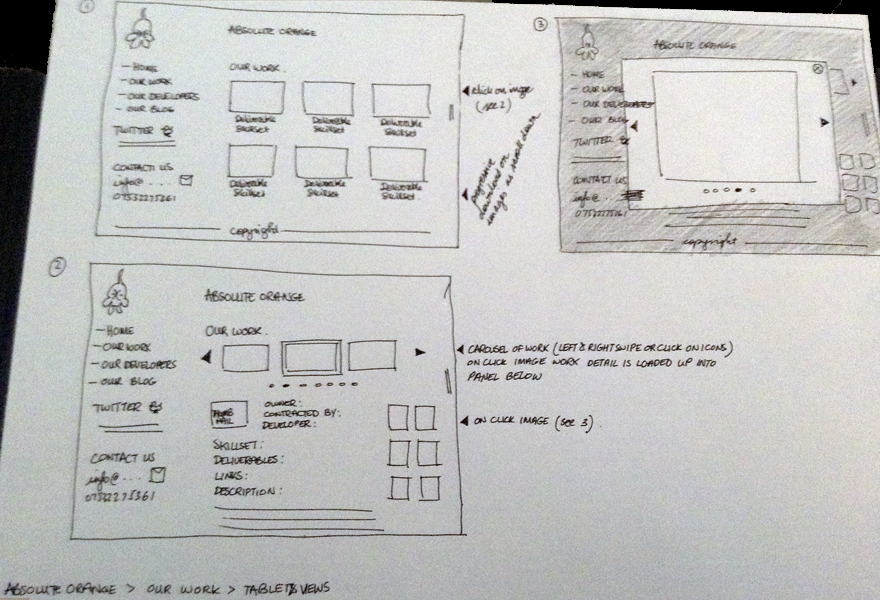 1
ABSOLUTE ORANGE
- HOME
- OUR WORK
- OUR DEVELOPERS
- OUR BLOG
TWITTER
CONTACT US
info@....
OUR WORK.
Deliverable
Skillset
Deliverable
Skillset
Deliverable
Skillset
Deliverable
Skillset
Deliverable
Skillset
Deliverable
Skillset.
copyright
click on image
(see 2)
progressive
download on
images as scroll down
3
ABSOLUTE ORANGE
- HOME
- OUR WORK
- OUR DEVELOPERS
- OUR BLOG
TWITTER
CONTACT US
info@...
copyright
2
ABSOLUTE ORANGE
- HOME
- OUR WORK
- OUR DEVELOPERS
- OUR BLOG
TWITTER
CONTACT US
info@....
OUR WORK.
THUMB
NAIL
OWNER:
CONTRACTED BY:
DEVELOPER:
SKILLSET:
DELIVERABLES:
LINKS:
DESCRIPTION:
CAROUSEL OF WORK (LEFT & RIGHT SWIPE OR CLICK ON ICONS)
ON CLICK IMAGE WORK DETAIL IS LOADED UP INTO
PANEL BELOW
ON CLICK IMAGE (SEE 3).
ABSOLUTE ORANGE > OUR WORK > TABLET VIEWS